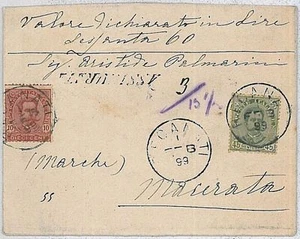 Valore dichiarato in Lire
Sessanta 60
Sig. Aristide Palmarini
ASSICURATA
3
15
10
45
RECANATI
99
(Marche)
Macerata
55